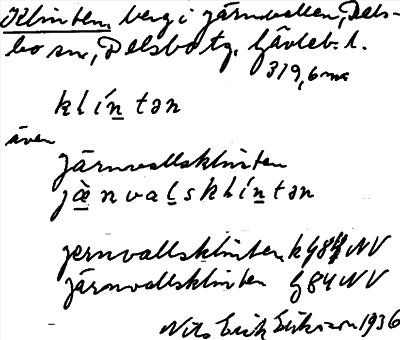 Klinten, berg i järnvallen, Dels-
bo sn, Delsbo tg. Gävleb. l.
319,6 m
klíntən
även
järnvallsklinten
jæ̀nvalsklíntən
jernvallsklinten k g 84 NV
järnvallsklinten g 84 NV
Nils Erik Eriksson 1936